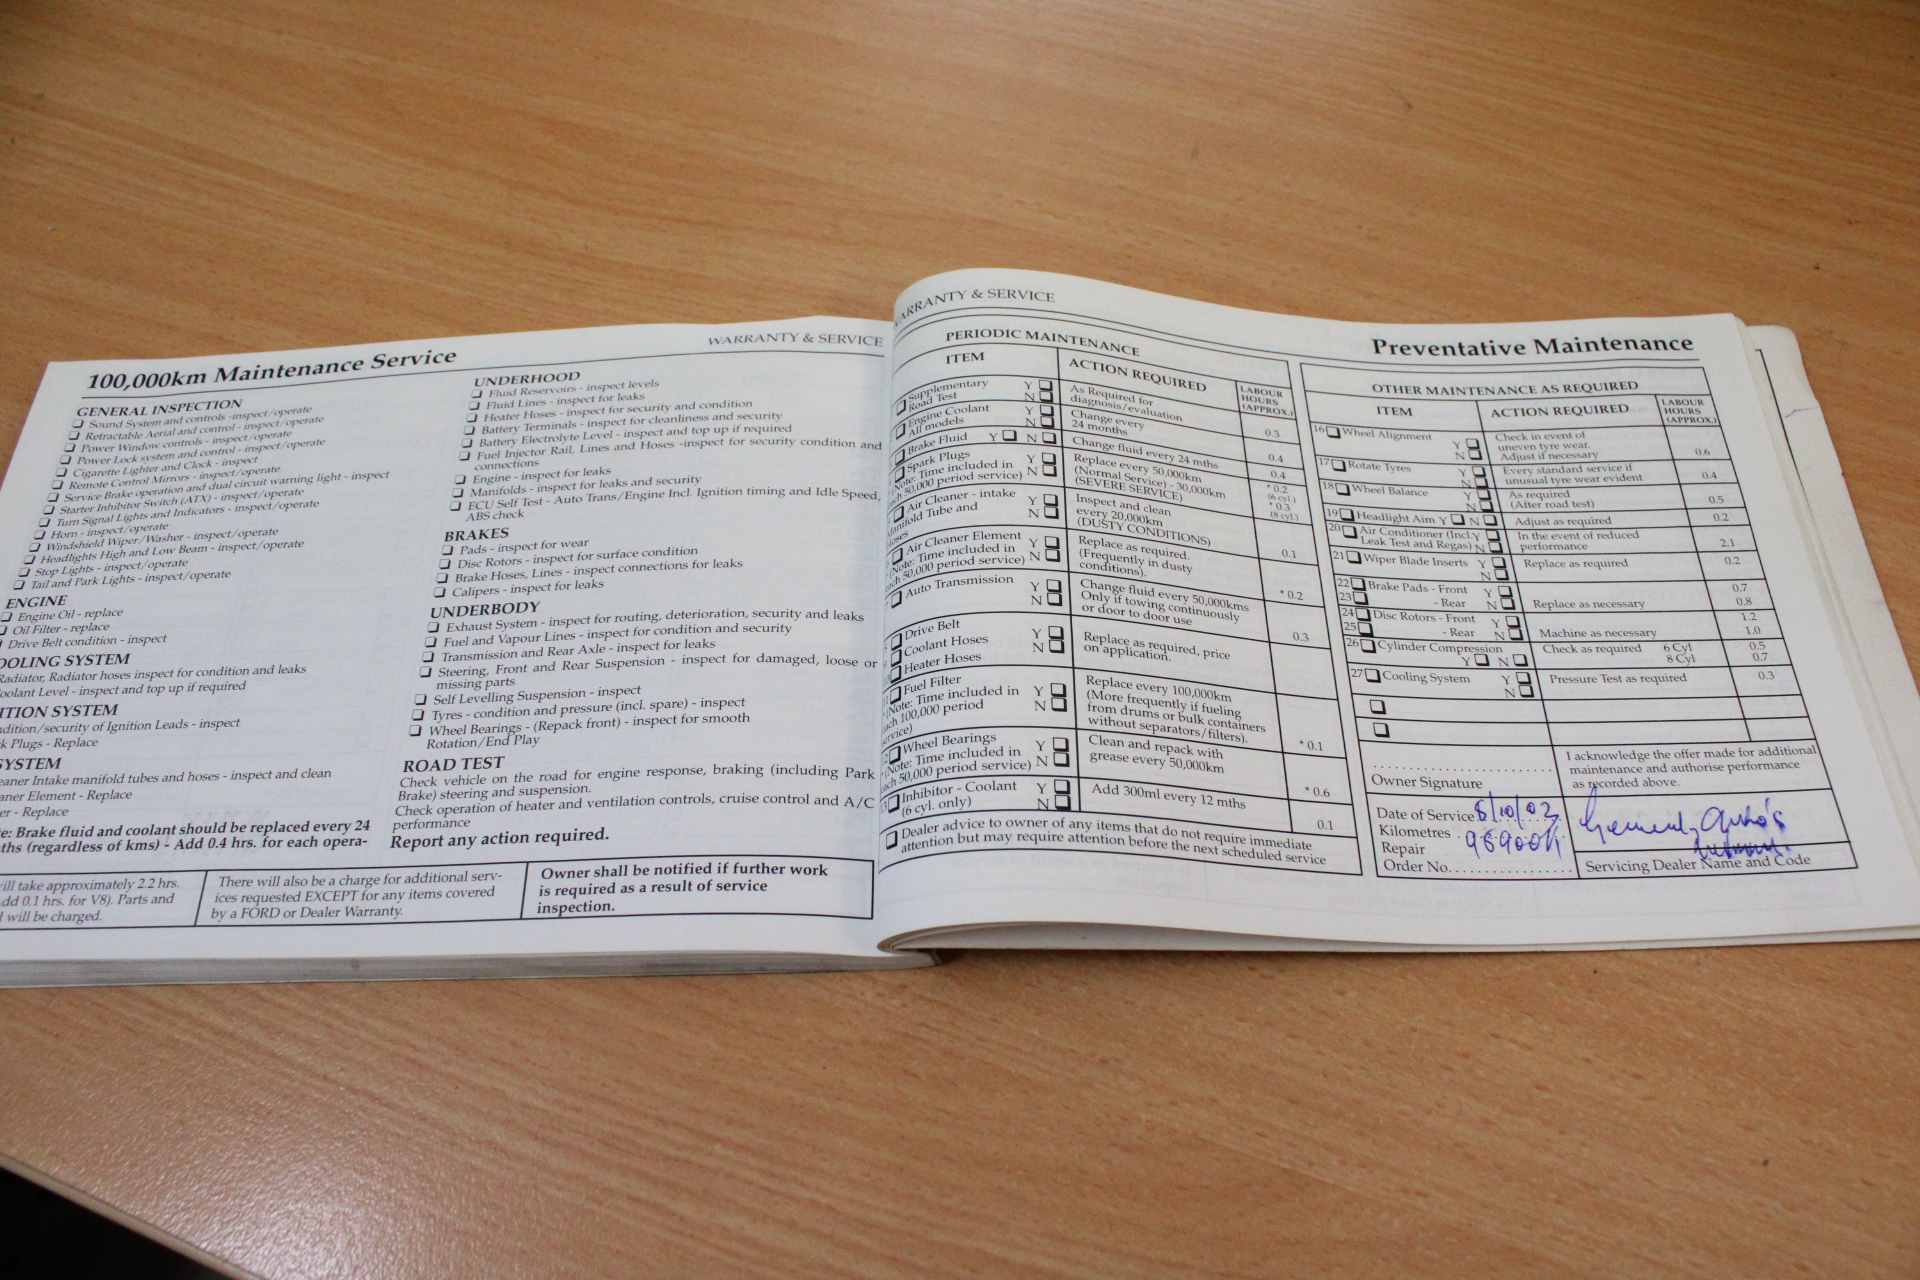 WARRANTY & SERVICE
100,000km Maintenance Service
GENERAL INSPECTION
❏ Sound System and controls -inspect/operate
❏ Retractable Aerial and control - inspect/operate
❏ Power Window controls - inspect/operate
❏ Power Lock system and control - inspect/operate
❏ Cigarette Lighter and Clock - inspect
❏ Remote Control Mirrors - inspect/operate
❏ Service Brake operation and dual circuit warning light - inspect
❏ Starter Inhibitor Switch (ATX) - inspect/operate
❏ Turn Signal Lights and Indicators - inspect/operate
❏ Horn - inspect/operate
❏ Windshield Wiper/Washer - inspect/operate
❏ Headlights High and Low Beam - inspect/operate
❏ Stop Lights - inspect/operate
❏ Tail and Park Lights - inspect/operate
ENGINE
❏ Engine Oil - replace
❏ Oil Filter - replace
❏ Drive Belt condition - inspect
OOLING SYSTEM
Radiator, Radiator hoses inspect for condition and leaks
oolant Level - inspect and top up if required
ITION SYSTEM
ndition/security of Ignition Leads - inspect
k Plugs - Replace
YSTEM
eaner Intake manifold tubes and hoses - inspect and clean
aner Element - Replace
er - Replace
e: Brake fluid and coolant should be replaced every 24
ths (regardless of kms) - Add 0.4 hrs. for each opera-
UNDERHOOD
❏ Fluid Reservoirs - inspect levels
❏ Fluid Lines - inspect for leaks
❏ Heater Hoses - inspect for security and condition
❏ Battery Terminals - inspect for cleanliness and security
❏ Battery Electrolyte Level - inspect and top up if required
❏ Fuel Injector Rail, Lines and Hoses -inspect for security condition and
connections
❏ Engine - inspect for leaks
❏ Manifolds - inspect for leaks and security
❏ ECU Self Test - Auto Trans/Engine Incl. Ignition timing and Idle Speed,
ABS check
BRAKES
❏ Pads - inspect for wear
❏ Disc Rotors - inspect for surface condition
❏ Brake Hoses, Lines - inspect connections for leaks
❏ Calipers - inspect for leaks
UNDERBODY
❏ Exhaust System - inspect for routing, deterioration, security and leaks
❏ Fuel and Vapour Lines - inspect for condition and security
❏ Transmission and Rear Axle - inspect for leaks
❏ Steering, Front and Rear Suspension - inspect for damaged, loose or
missing parts
❏ Self Levelling Suspension - inspect
❏ Tyres - condition and pressure (incl. spare) - inspect
❏ Wheel Bearings - (Repack front) - inspect for smooth
Rotation/End Play
ROAD TEST
Check vehicle on the road for engine response, braking (including Park
Brake) steering and suspension.
Check operation of heater and ventilation controls, cruise control and A/C
performance
Report any action required.
ill take approximately 2.2 hrs.
dd 0.1 hrs. for V8). Parts and
d will be charged.
There will also be a charge for additional serv-
ices requested EXCEPT for any items covered
by a FORD or Dealer Warranty.
Owner shall be notified if further work
is required as a result of service
inspection.
WARRANTY & SERVICE
Preventative Maintenance
PERIODIC MAINTENANCE
ITEM ACTION REQUIRED LABOUR
HOURS
(APPROX.)
❏ Supplementary Y ❏ As Required for
Road Test N ❏ diagnosis/evaluation
❏ Engine Coolant Y ❏ Change every 0.3
All models N ❏ 24 months
❏ Brake Fluid Y ❏ N ❏ Change fluid every 24 mths 0.4
❏ Spark Plugs Y ❏ Replace every 50,000km 0.4
(Note: Time included in N ❏ (Normal Service) - 30,000km * 0.2
ach 50,000 period service) (SEVERE SERVICE) (6 cyl.)
* 0.3
(8 cyl.)
❏ Air Cleaner - intake Y ❏ Inspect and clean
Manifold Tube and N ❏ every 20,000km
Hoses (DUSTY CONDITIONS) 0.1
❏ Air Cleaner Element Y ❏ Replace as required.
(Note: Time included in N ❏ (Frequently in dusty
ach 50,000 period service) conditions). * 0.2
❏ Auto Transmission Y ❏ Change fluid every 50,000kms
N ❏ Only if towing continuously
or door to door use 0.3
❏ Drive Belt Y ❏ Replace as required, price
❏ Coolant Hoses N ❏ on application.
❏ Heater Hoses
❏ Fuel Filter Y ❏ Replace every 100,000km
(Note: Time included in N ❏ (More frequently if fueling
ach 100,000 period from drums or bulk containers
service) without separators/filters). * 0.1
❏ Wheel Bearings Y ❏ Clean and repack with
(Note: Time included in N ❏ grease every 50,000km
ach 50,000 period service) * 0.6
❏ Inhibitor - Coolant Y ❏ Add 300ml every 12 mths
(6 cyl. only) N ❏ 0.1
❏ Dealer advice to owner of any items that do not require immediate
attention but may require attention before the next scheduled service
OTHER MAINTENANCE AS REQUIRED
ITEM ACTION REQUIRED LABOUR
HOURS
(APPROX.)
16 ❏ Wheel Alignment Y ❏ Check in event of
N ❏ uneven tyre wear.
Adjust if necessary 0.6
17 ❏ Rotate Tyres Y ❏ Every standard service if
N ❏ unusual tyre wear evident 0.4
18 ❏ Wheel Balance Y ❏ As required
N ❏ (After road test) 0.5
19 ❏ Headlight Aim Y ❏ N ❏ Adjust as required 0.2
20 ❏ Air Conditioner (Incl. Y ❏ In the event of reduced
Leak Test and Regas) N ❏ performance 2.1
21 ❏ Wiper Blade Inserts Y ❏ Replace as required 0.2
N ❏
22 ❏ Brake Pads - Front Y ❏ 0.7
23 ❏ - Rear N ❏ Replace as necessary 0.8
24 ❏ Disc Rotors - Front Y ❏ 1.2
25 ❏ - Rear N ❏ Machine as necessary 1.0
26 ❏ Cylinder Compression Check as required 6 Cyl 0.5
Y ❏ N ❏ 8 Cyl 0.7
27 ❏ Cooling System Y ❏ Pressure Test as required 0.3
N ❏
❏
❏
Owner Signature
I acknowledge the offer made for additional
maintenance and authorise performance
as recorded above.
Date of Service 8/10/02
Kilometres
Repair
Order No.
Servicing Dealer Name and Code